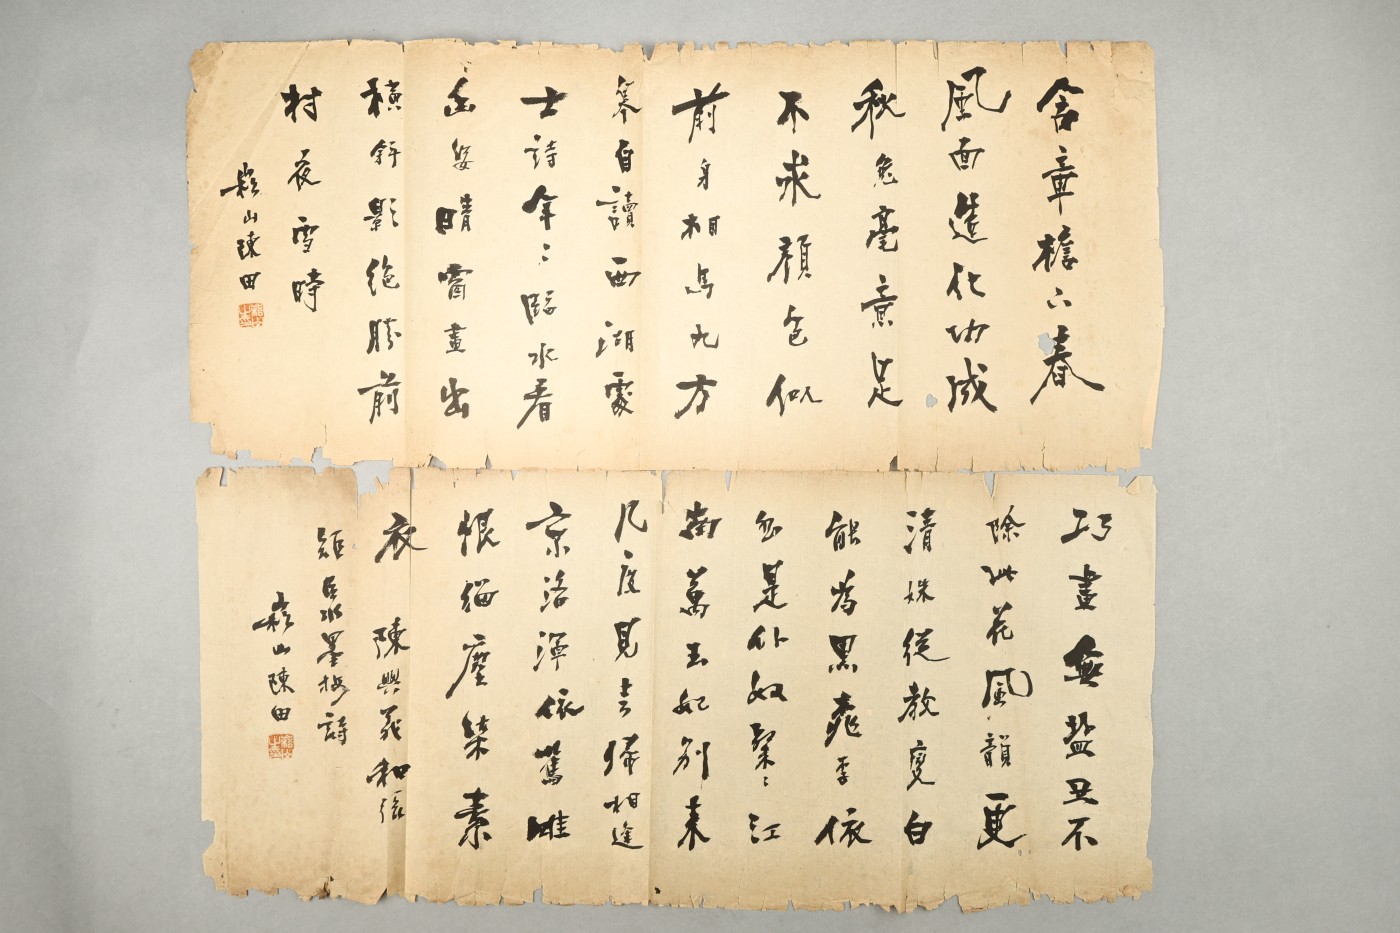 含章檐下春
風面造化功成
秋兔毫意足
不求顏色似
前身相馬九方
皋自讀西湖處
士詩年〻臨水看
幽姿晴窗畫出
橫斜影絕勝前
村夜雪時
崧山陳田
巧畫無鹽丑不
除此花風韻更
清姝從教變白
能為黑桃李依
然是仆奴粲〻江
南萬玉妃別來
几度見春歸相逢
京洛渾依舊唯
恨緇塵染素
衣 陳與義和張
矩臣水墨梅詩
崧山陳田